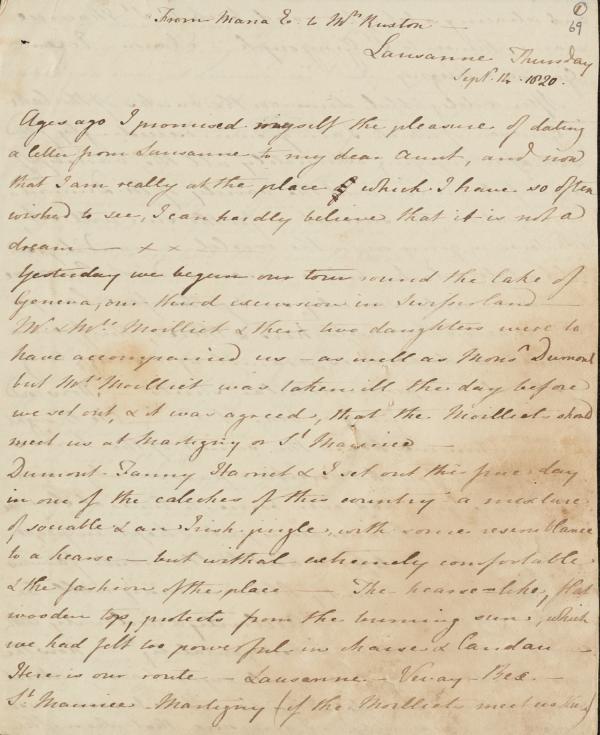 ①
69
From Maria E. to Mrs Ruxton —
Lausanne Thursday
Sept. 14 1820.
Ages ago I promised myself the pleasure of dating
a letter from Lausanne to my dear Aunt, and now
that I am really at the place which I have so often
wished to see, I can hardly believe that it is not a
dream — x x
Yesterday we began our tour round the lake of
Geneva, our third excursion in Switzerland —
Mr. & Mrs. Moilliet & their two daughters were to
have accompanied us — as well as Monsr Dumont
but Mrs Moilliet was taken ill the day before
we set out, & it was agreed, that the Moilliets should
meet us at Martigny or St Maurice —
Dumont Fanny Harriet & I set out this fine day
in one of the caleches of this country a mixture
of sociable & an Irish jingle, with some resemblance
to a hearse — but withal extremely comfortable
& the fashion of the place — The hearse=like, flat
wooden top, protects from the burning sun, which
we had felt too powerful in chaise & Landau —
Here is our route — Lausanne — Vevay — Bex —
St Maurice — Martigny (if the Moilliets meet us there)